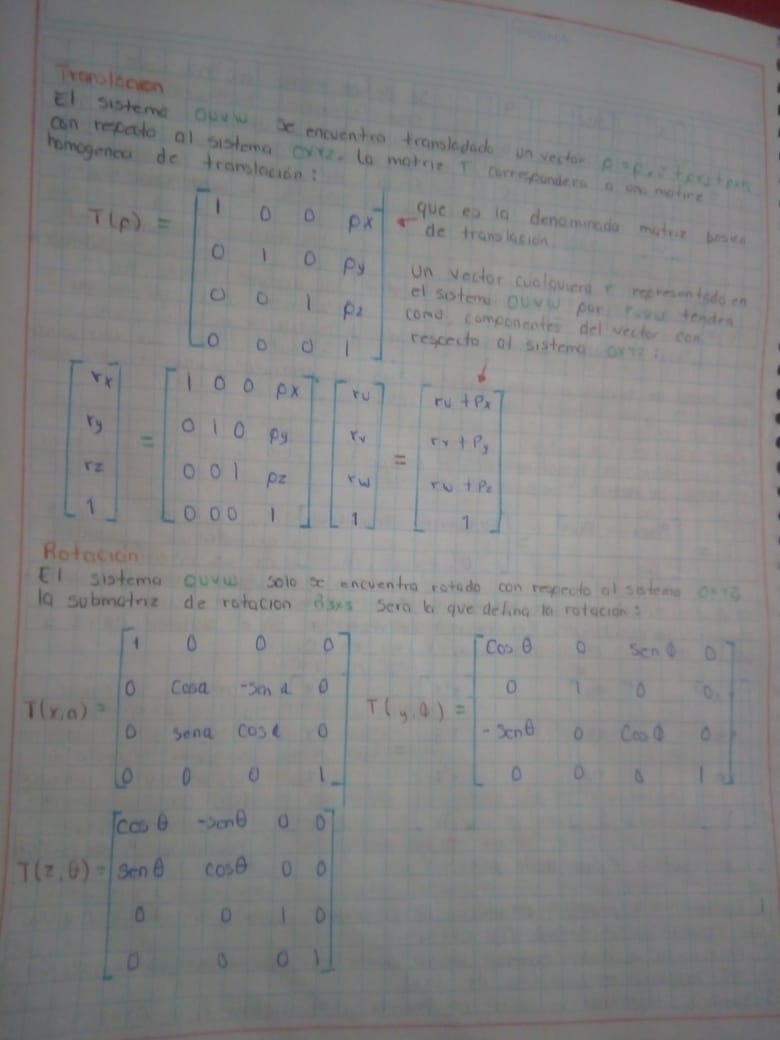 Translacion
El sistema OUVW se encuentra transladado un vector p = pxi + pyj + pzk
con respecto al sistema OXYZ. La matriz T correspondera a una matire
homogenea de translación:
T(p) =
1 0 0 px
0 1 0 py
0 0 1 pz
0 0 0 1
que es la denominada matriz basica
de translacion
Un vector cualquiera r representado en
el sistema OUVW por ruvw tendra
como componentes del vector con
respecto al sistema OXYZ:
rx = 1 0 0 px ru = ru + Px
ry 0 1 0 py rv rv + Py
rz 0 0 1 pz rw rw + Pz
1 0 0 0 1 1 1
Rotación
El sistema OUVW solo se encuentra rotado con respecto al sistema OXYZ
la submatriz de rotacion R3x3 sera la que defina la rotación:
T(x,α) =
1 0 0 0
0 Cosα -senα 0
0 senα cosα 0
0 0 0 1
T(y,θ) =
Cos θ 0 sen θ 0
0 1 0 0
-senθ 0 Cos θ 0
0 0 0 1
T(z,θ) =
cos θ -senθ 0 0
senθ cosθ 0 0
0 0 1 0
0 0 0 1